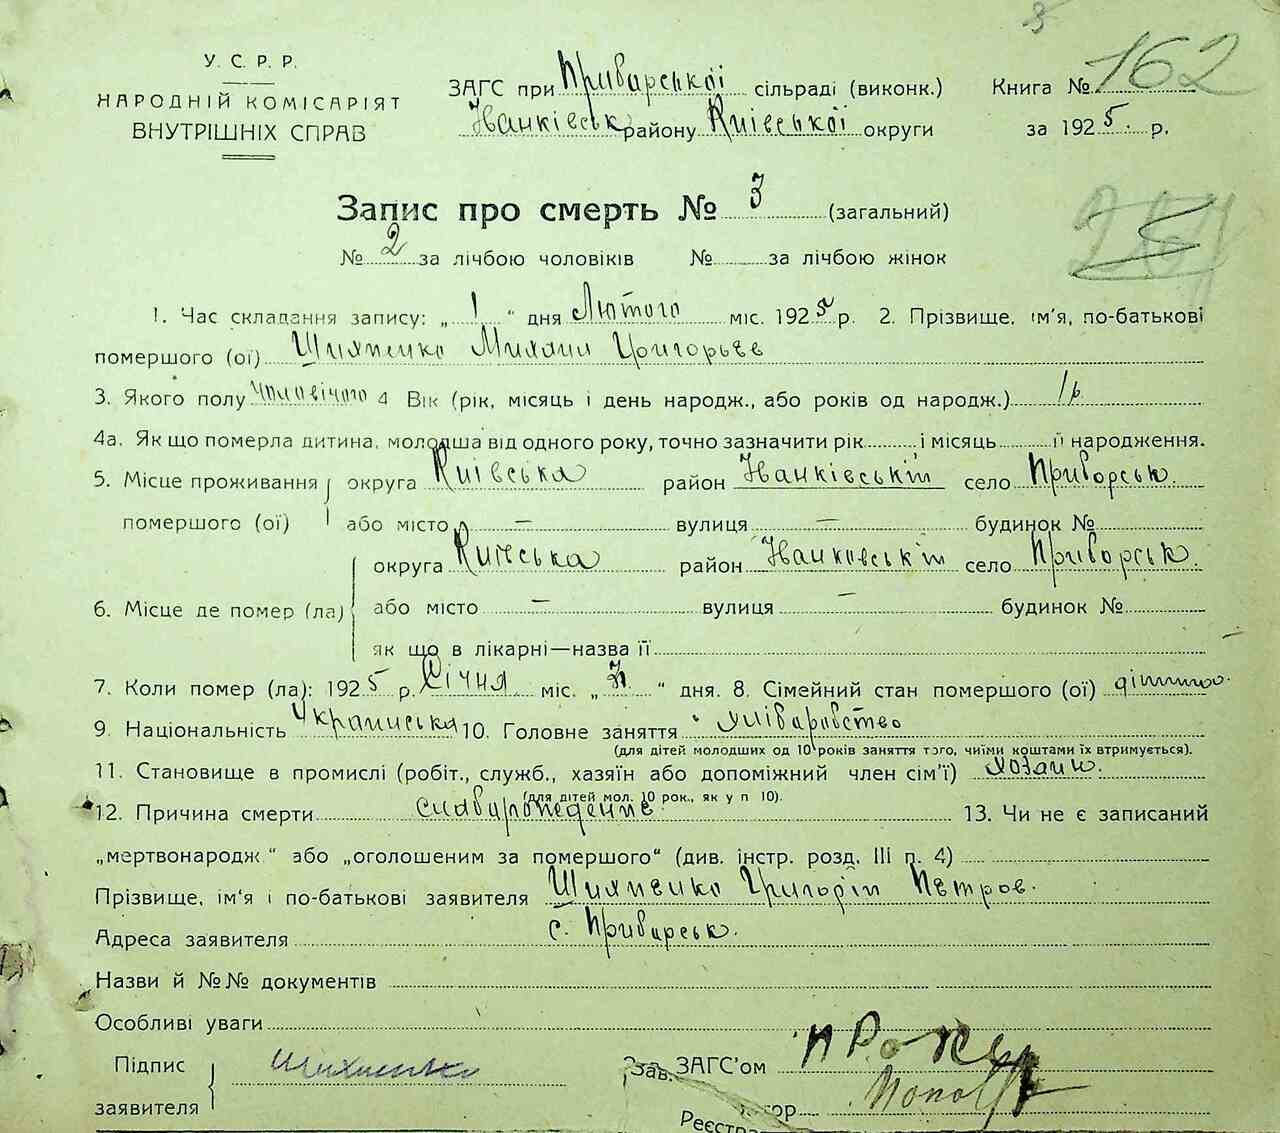 У. С. Р. Р.
НАРОДНІЙ КОМІСАРІЯТ
ВНУТРІШНІХ СПРАВ
ЗАГС при Приварської сільраді (виконк.)
Іванківськ району Київської округи
Книга № 162
за 1925 р.
Запис про смерть № 3 (загальний)
№ 2 за лічбою чоловіків № за лічбою жінок
1. Час складання запису: „ 1 “ дня Лютого міс. 1925 р. 2. Прізвище, ім'я, по-батькові
помершого (ої) Шихненко Михаил Григорьев
3. Якого полу чоловічого 4 Вік (рік, місяць і день народж., або років од народж.) 1 р
4а. Як що померла дитина, молодша від одного року, точно зазначити рік і місяць її народження.
5. Місце проживання округа Київська район Іванківський село Приборськ.
помершого (ої) або місто — вулиця — будинок №
округа Київська район Іванковський село Приборськ.
6. Місце де помер (ла) або місто — вулиця — будинок №
як що в лікарні—назва її
7. Коли помер (ла): 1925 р. Січня міс. „ “ дня. 8. Сімейний стан помершого (ої)
9. Національність Украинська 10. Головне заняття хліборобство
(для дітей молодших од 10 років заняття того, чиїми коштами їх втримується).
11. Становище в промислі (робіт., служб., хазяїн або допоміжний член сім'ї) хозаин.
(для дітей мол. 10 рок., як у п 10).
12. Причина смерти 13. Чи не є записаний
„мертвонародж“ або „оголошеним за помершого“ (див. інстр. розд. III п. 4)
Прізвище, ім'я і по-батькові заявителя Шихненко Григорій Петров.
Адреса заявителя с. Приварськ.
Назви й №№ документів
Особливі уваги
Підпис Шихненко Зав. ЗАГС'ом
заявителя